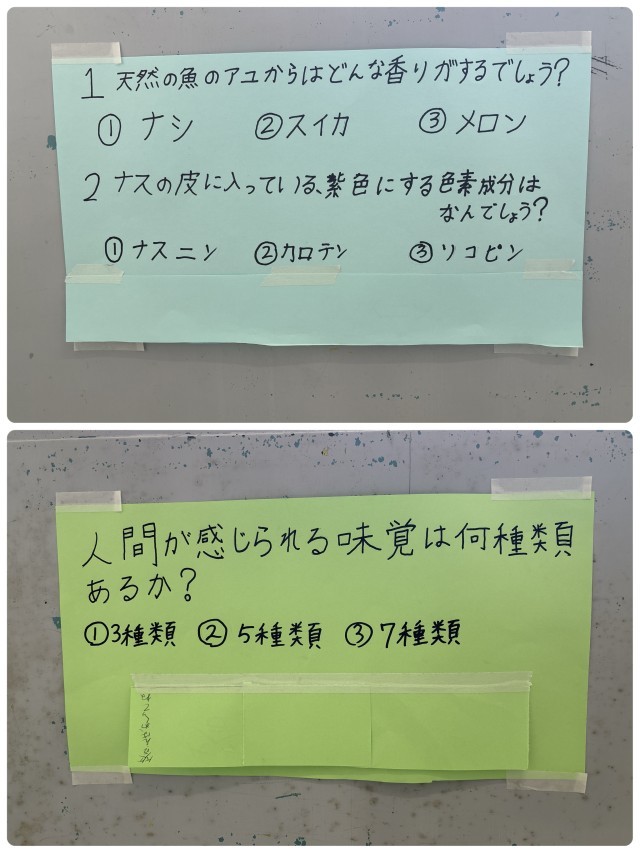 1 天然の魚のアユからはどんな香りがするでしょう?
① ナシ ②スイカ ③メロン
2 ナスの皮に入っている、紫色にする色素成分は
なんでしょう?
①ナスニン ②カロテン ③リコピン
人間が感じられる味覚は何種類
あるか?
①3種類 ②5種類 ③7種類